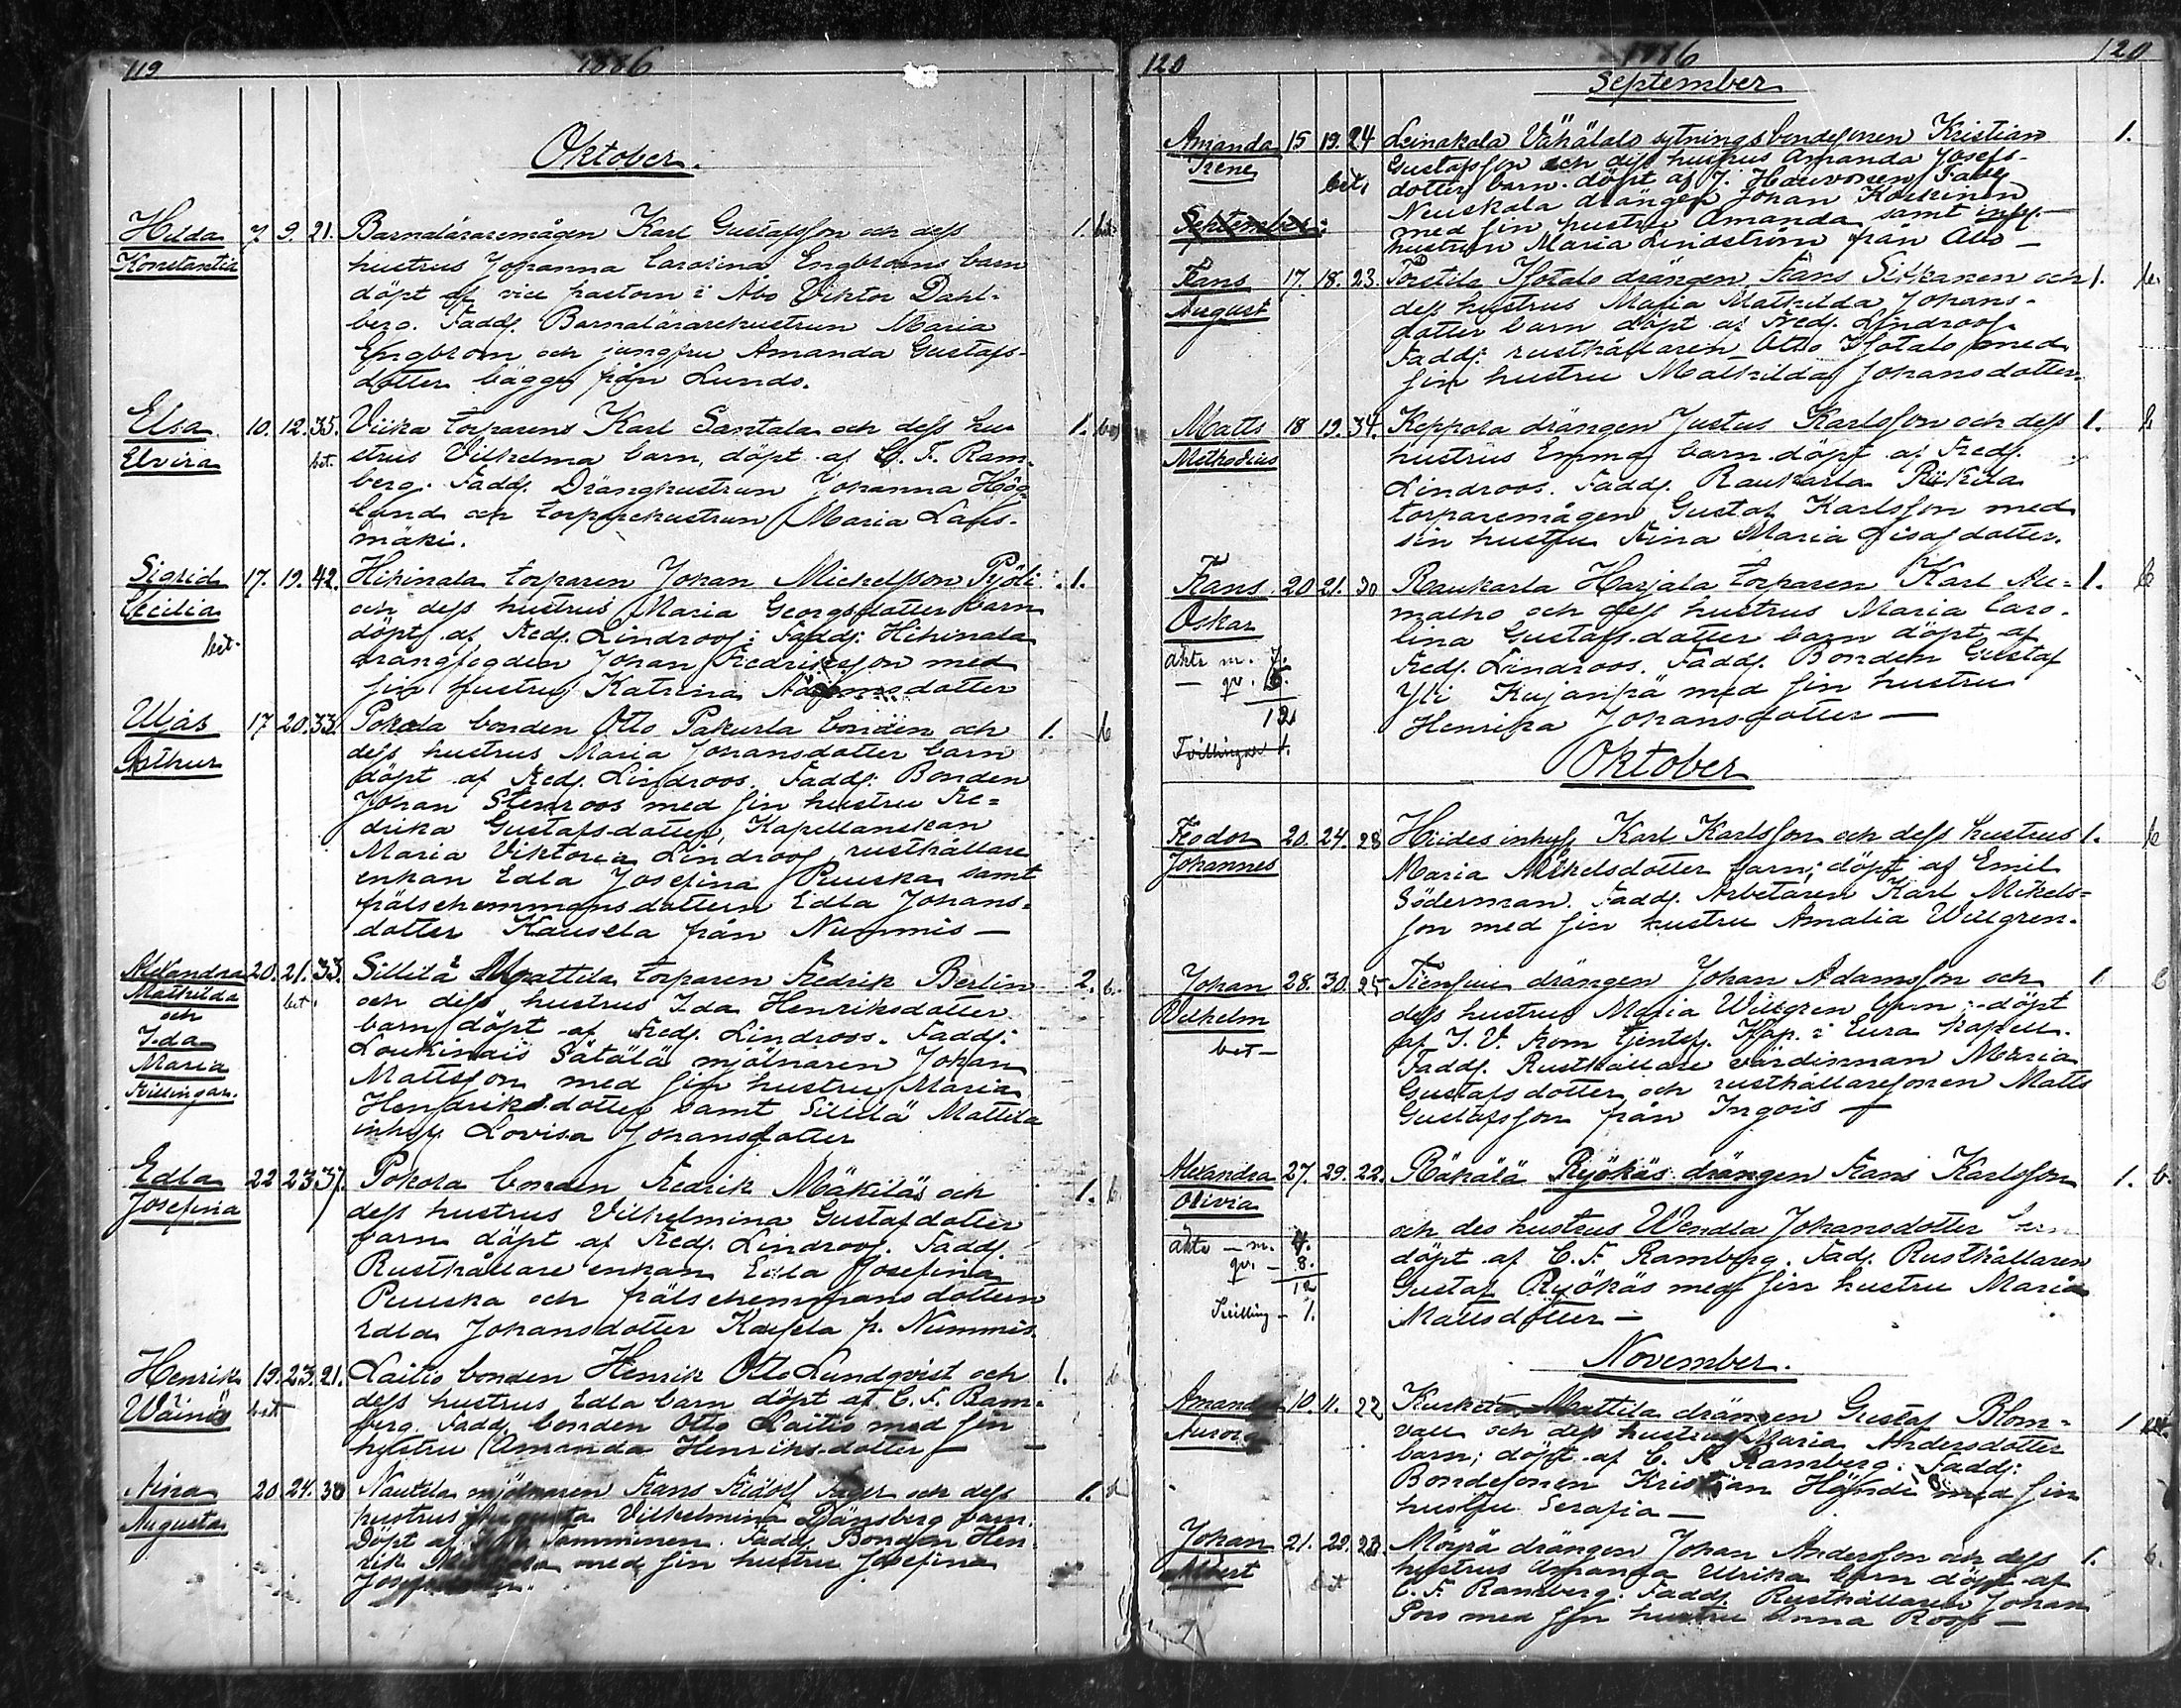 119 1886
Oktober.
Hilda 7. 9. 21. Barnaläraremågen Karl Gustafsson och dess 1. bet.
Konstantia hustrus Johanna Carolina Engbloms barn
döpt af vice pastorn i Åbo Viktor Dahl-
berg. Fadd. Barnalärarehustrun Maria
Engblom och jungfru Amanda Gustafs-
dotter bägge från Lunds.
Elsa 10. 12. 35. Viika torparens Karl Santala och dess hu- 1.
Elvira bet. strus Vilhelma barn, döpt af C. F. Ram-
berg. Fadd. Dränghustrun Johanna Hög-
lund och torparehustrun Maria Laus-
mäki.
Sigrid 17. 19. 42. Hihinala torparen Johan Michelsson Pyöli 1.
Cecilia och dess hustrus Maria Georgsdotter barn
bet. döpt af Fredj. Lindroos: Faddj: Hihinala
drängfogden Johan Fredriksson med
sin hustru Katrina Adamsdotter
Uljas 17 20. 33. Pokola bonden Otto Pakurla bonden och 1. b
Arthur dess hustrus Maria Johansdotter barn
döpt af Fredj. Lindroos. Faddj: Bonden
Johan Stenroos med sin hustru Fre-
drika Gustafsdotter, Kapellanskan
Maria Viktoria Lindroos, rusthållare
enkan Edla Josefina Puuska samt
frälsehemmansdottern Edla Johans-
dotter Kausela från Nummis —
Alexandra 20. 21. 33. Sillilä Mattila torparen Fredrik Berlin 2. b.
Mathilda bet. och dess hustrus Ida Henriksdotter
och barn döpt af Fredj. Lindroos. Faddj:
Ida Loukinais Sätälä mjölnaren Johan
Maria Mattsson med sin hustru Maria
tvillingar. Hendriksdotter samt Sillilä Mattila
inhys. Lovisa Johansdotter
Edla 22 23 37. Pokola bonden Fredrik Mäkilä och 1. b.
Josefina dess hustrus Vilhelmina Gustafdotter
barn döpt af Fredj. Lindroos. Faddj.
Rusthållare enkan Edla Josefina
Puuska och frälsehemmans dottern
Edla Johansdotter Kausela fr. Nummis.
Henrik 19. 23. 21. Laitis bonden Henrik Otto Lundqvist och 1.
Wäinö bet dess hustrus Edla barn döpt af C. F. Ram-
berg. Fadd. bonden Otto Laitis med sin
hustru Amanda Henriksdotter —
Aina 20 24. 30 Nautila mjölnaren Frans Fridolf och dess 1.
Augusta hustrus Augusta Vilhelmina Dänsberg barn.
Döpt af Tamminen. Fadd. Bonden Hen-
rik med sin hustru Josefina
120 1886 120
September
Amanda 15 19. 24 Leinakala Vähätalo sytningsbondesonen Kristian 1.
Irene bet. Gustafsson och dess hustrus Amanda Josefs-
dotter barn. döpt af J. Hauvonen, Fadd.
Neuskala drängen Johan Koskinen
September: med sin hustru Amanda samt inhy.
hustrun Maria Lindström från Åbo —
Frans 17. 18. 23. Torstila Isotalo drängen Frans Sirkanen och 1.
August dess hustrus Maria Mathilda Johans-
dotter barn döpt af Fredj. Lindroos.
Faddj: rusthållaren Otto Isotalo med
sin hustru Mathilda Johansdotter.
Matts 18 19. 34. Keppola drängen Justus Karlsson och dess 1.
Methodius hustrus Emma barn döpt af Fredj.
Lindroos. Faddj. Raukarla Rükila
torparemågen Gustaf Karlsson med
sin hustru Fina Maria Lisasdotter.
Frans 20 21. 30 Raukarla Harjala torparen Karl Au- 1. b
Oskar malho och dess hustrus Maria Caro-
äkta m. 7. lina Gustafsdotter barn döpt af
— qv. 5. Fredj. Lindroos. Faddj. Bonden Gustaf
12 Yli Kujanpä med sin hustru
Henrika Johansdotter —
Tvillingar 1.
Oktober
Feodor 20. 24. 28 Hiides inhys. Karl Karlsson och dess hustrus 1. b
Johannes Maria Mikelsdotter barn; döpt af Emil
Söderman. Faddj. Arbetaren Karl Mikels-
son med sin hustru Amalia Willgren.
Johan 28. 30. 25 drängen Johan Adamsson och 1
Wilhelm dess hustrus Maria Willgren barn; döpt
bet — af I. V. From tjenstg. Kap. i Eura kapell.
Faddj. Rusthållare värdinnan Maria
Gustafsdotter och rusthållaresonen Matts
Gustafsson från Ingois —
Alexandra 27. 29. 22. Räkälä Ryökäs drängen Frans Karlsson 1. b.
Olivia och des hustrus Wendla Johansdotter barn
äkta — m. 4. döpt af C. F. Ramberg. Fadj. Rusthållaren
qv. — 8. Gustaf Ryökäs med sin hustru Maria
12 Mattsdotter —
Tvilling — 1.
November.
Amanda 10. 11. 22 Mattila drängen Gustaf Blom- 1
Aurora vall och dess hustrus Maria Andersdotter
barn; döpt af C. F. Ramberg. Faddj:
Bondesonen Kristian med sin
hustru Serafia —
Johan 21. 22. Moisiä drängen Johan Andersson och dess 1. b.
Albert bet hustrus Amanda Ulrika barn döpt af
C. F. Ramberg. Faddj. Rusthållaren Johan
Pors med sin hustru Anna Roos —